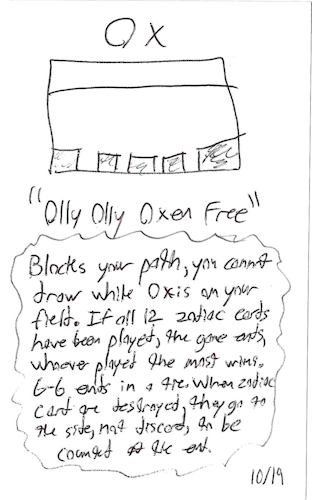 OX
"Olly Olly Oxen Free"
Blocks your path, you cannot
draw while Ox is on your
field. If all 12 zodiac cards
have been played, the game ends,
whoever played the most wins.
6-6 ends in a tie. When zodiac
card are destroyed, they go to
the side, not discard, to be
counted at the end.
10/19